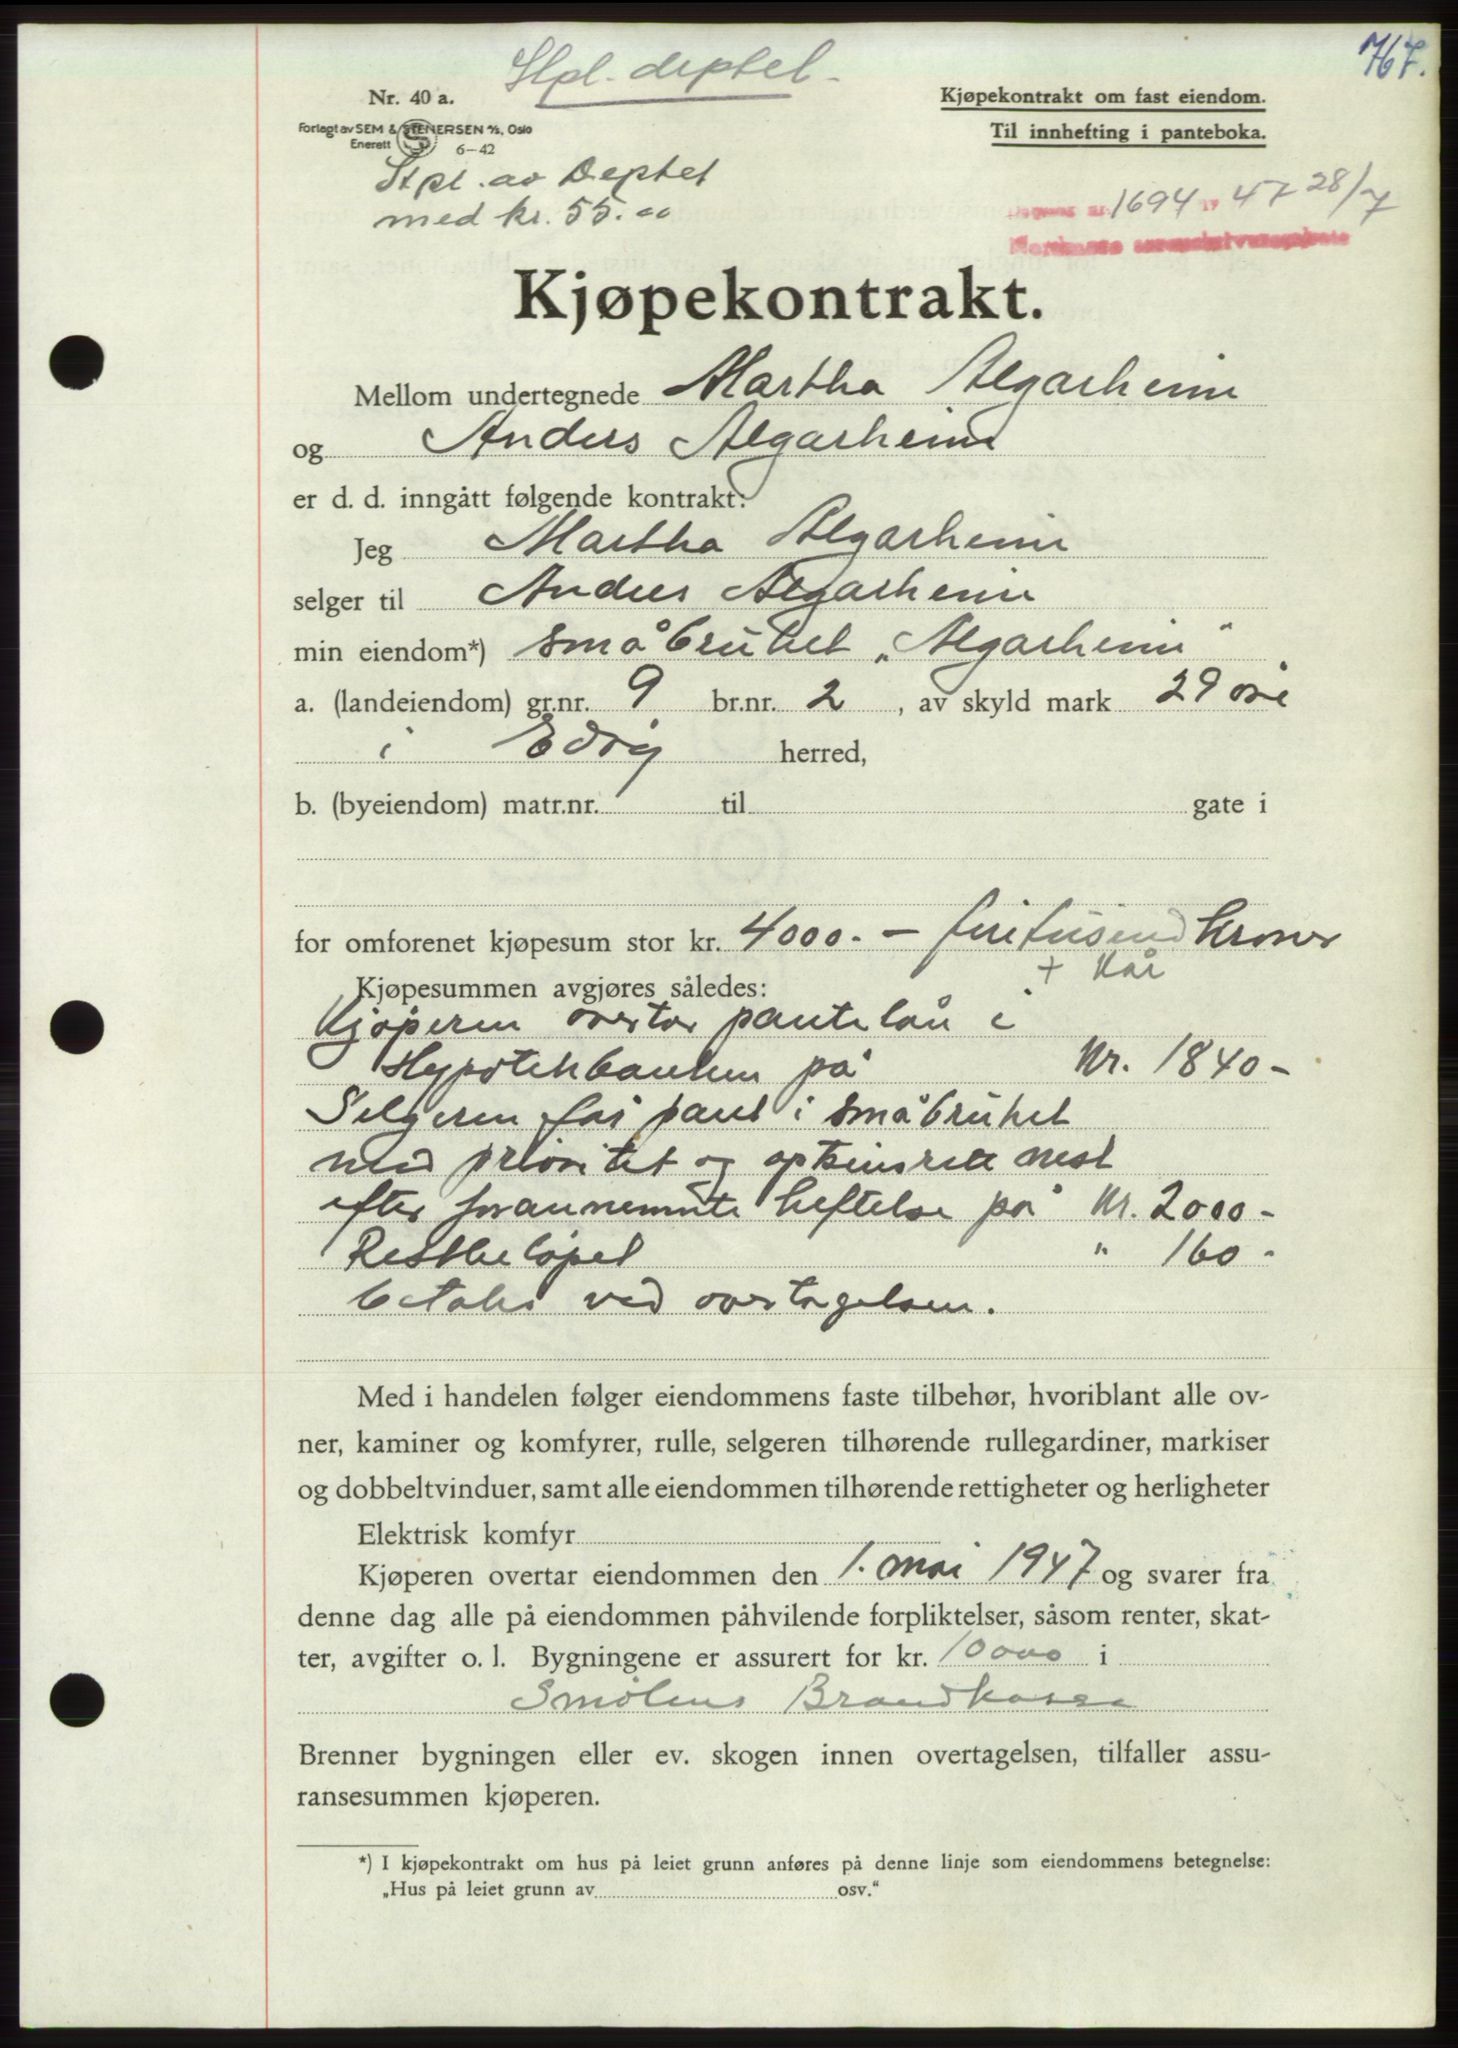 767.
Stpl. deptet.
Nr. 40 a.
Kjøpekontrakt om fast eiendom.
Forlagt av SEM & STENERSEN A/S, Oslo
Enerett
6-42
Til innhefting i panteboka.
Stpl. av Deptet
med kr. 55.00
1694 19 47 28/7
Kjøpekontrakt.
Mellom undertegnede Martha Algarheim
og Anders Algarheim
er d. d. inngått følgende kontrakt:
Jeg Martha Algarheim
selger til Anders Algarheim
min eiendom*) småbruket „Algarheim"
a. (landeiendom) gr.nr. 9 br.nr. 2, av skyld mark 29 øre
i Edøy herred,
b. (byeiendom) matr.nr. til gate i
for omforenet kjøpesum stor kr. 4000.- firetusend kroner
+ kår
Kjøpesummen avgjøres således:
Kjøperen overtar pantelån i
Hypotekbanken på Kr. 1840-
Selgeren får pant i småbruket
med prioritet og opptrinsrett nest
efter forannemnte heftelse på Kr. 2000-
Restbeløpet " 160-
betales ved overtagelsen.
Med i handelen følger eiendommens faste tilbehør, hvoriblant alle ov-
ner, kaminer og komfyrer, rulle, selgeren tilhørende rullegardiner, markiser
og dobbeltvinduer, samt alle eiendommen tilhørende rettigheter og herligheter
Elektrisk komfyr
Kjøperen overtar eiendommen den 1. mai 1947 og svarer fra
denne dag alle på eiendommen påhvilende forpliktelser, såsom renter, skat-
ter, avgifter o. l. Bygningene er assurert for kr. 10000 i
Smølens Brandkasse
Brenner bygningen eller ev. skogen innen overtagelsen, tilfaller assu-
ransesummen kjøperen.
*) I kjøpekontrakt om hus på leiet grunn anføres på denne linje som eiendommens betegnelse:
„Hus på leiet grunn av osv."